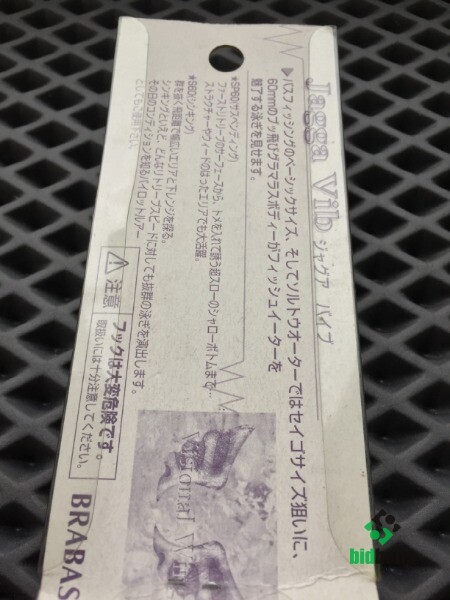 Jagga Vib ジャグア バイブ
▶バスフィッシングのベーシックサイズ、そしてソルトウオーターではセイゴサイズ狙いに、
60mmのブッ飛びグラマラスボディーがフィッシュイーターを
魅了する泳ぎを見せます。
*SP60(サスペンディング)
ファーストリトリーブのサーフェースから、トメを入れて誘う超スローのシャローボトムまで…
ストラクチャーやウィードのはったエリアでも大活躍。
*S60(シンキング)
群を抜く飛距離で幅広いエリアとドレンジを探る。
シンキングといえど、どんなリトリーブスピードに対しても抜群の泳ぎを演出します。
その日のコンディションを知るパイロットルアー
としてもご使用下さい。
注意
フックは大変危険です。
取扱いには十分注意してください。
BRABAS
bid